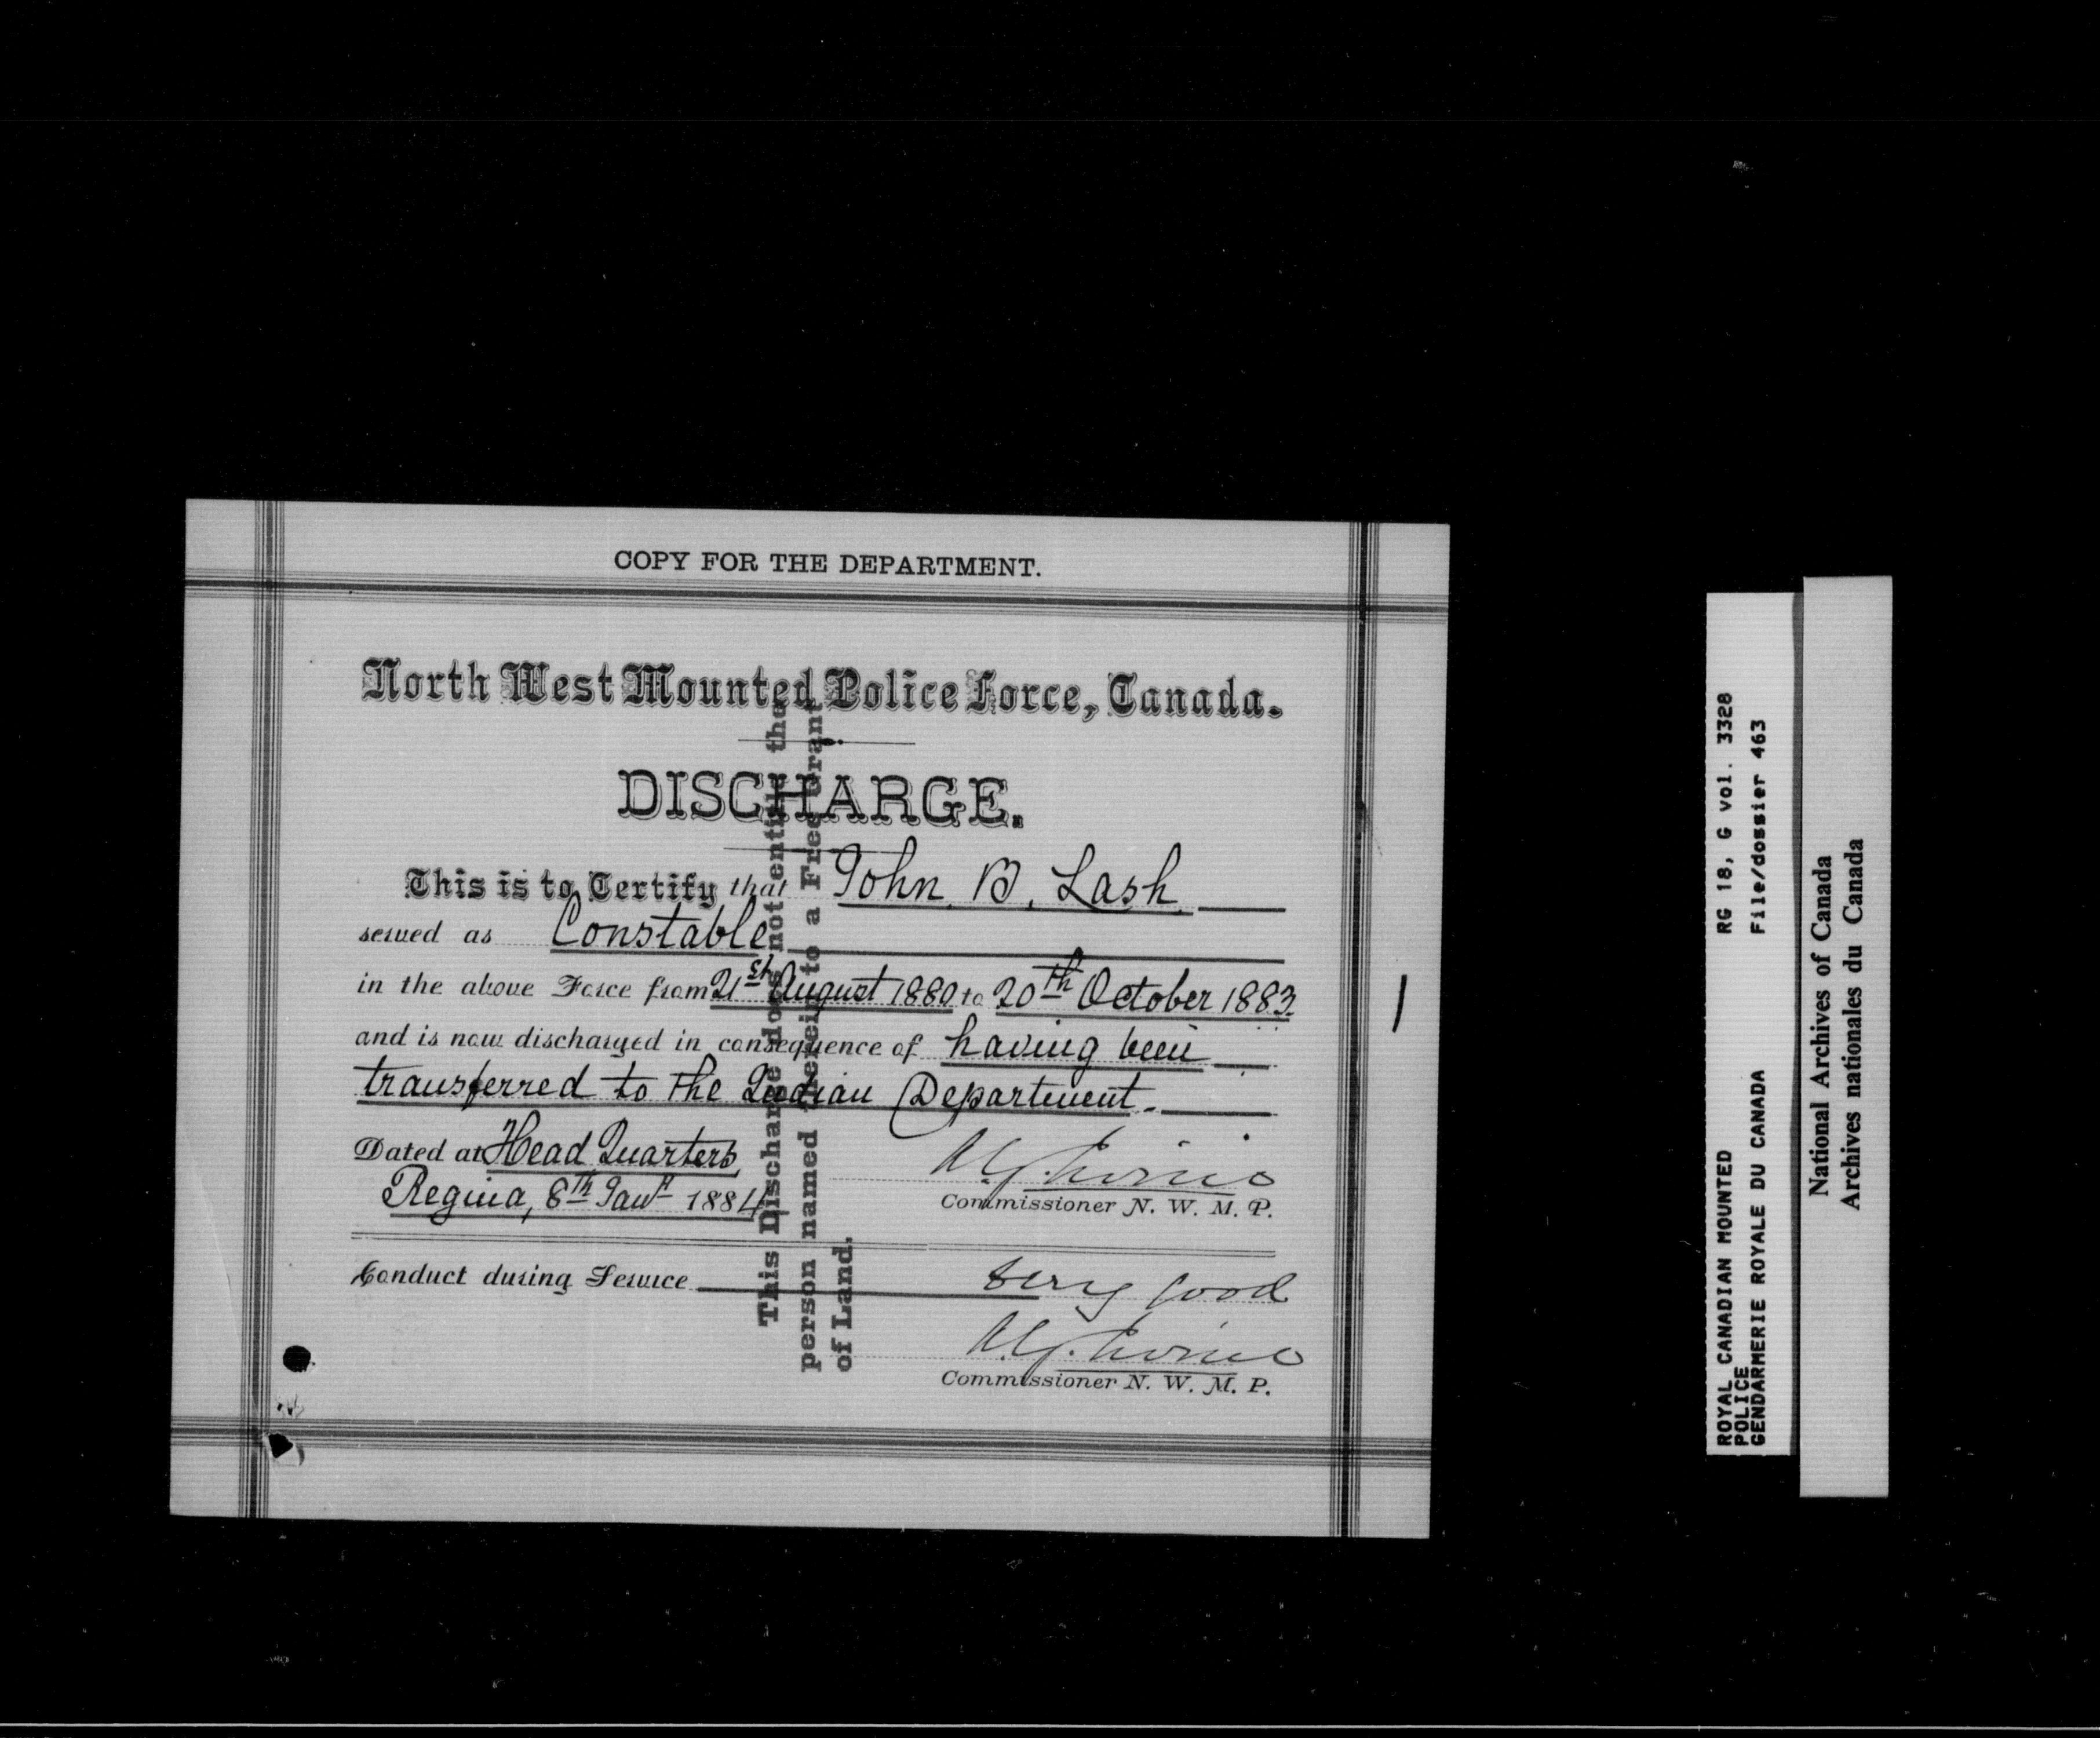 COPY FOR THE DEPARTMENT.
North West Mounted Police Force, Canada.
DISCHARGE.
This is to Certify that John B. Lash
served as Constable
in the above Force from 21st August 1880 to 20th October 1883.
and is now discharged in consequence of having been
transferred to the Indian Department.
Dated at Head Quarters
Regina, 8th Jany 1884
Commissioner N. W. M. P.
Conduct during Service very good
Commissioner N. W. M. P.
This Discharge does not entitle the
person named herein to a Free Grant
of Land.
ROYAL CANADIAN MOUNTED RG 18, G vol. 3328
POLICE
GENDARMERIE ROYALE DU CANADA File/dossier 463
National Archives of Canada
Archives nationales du Canada